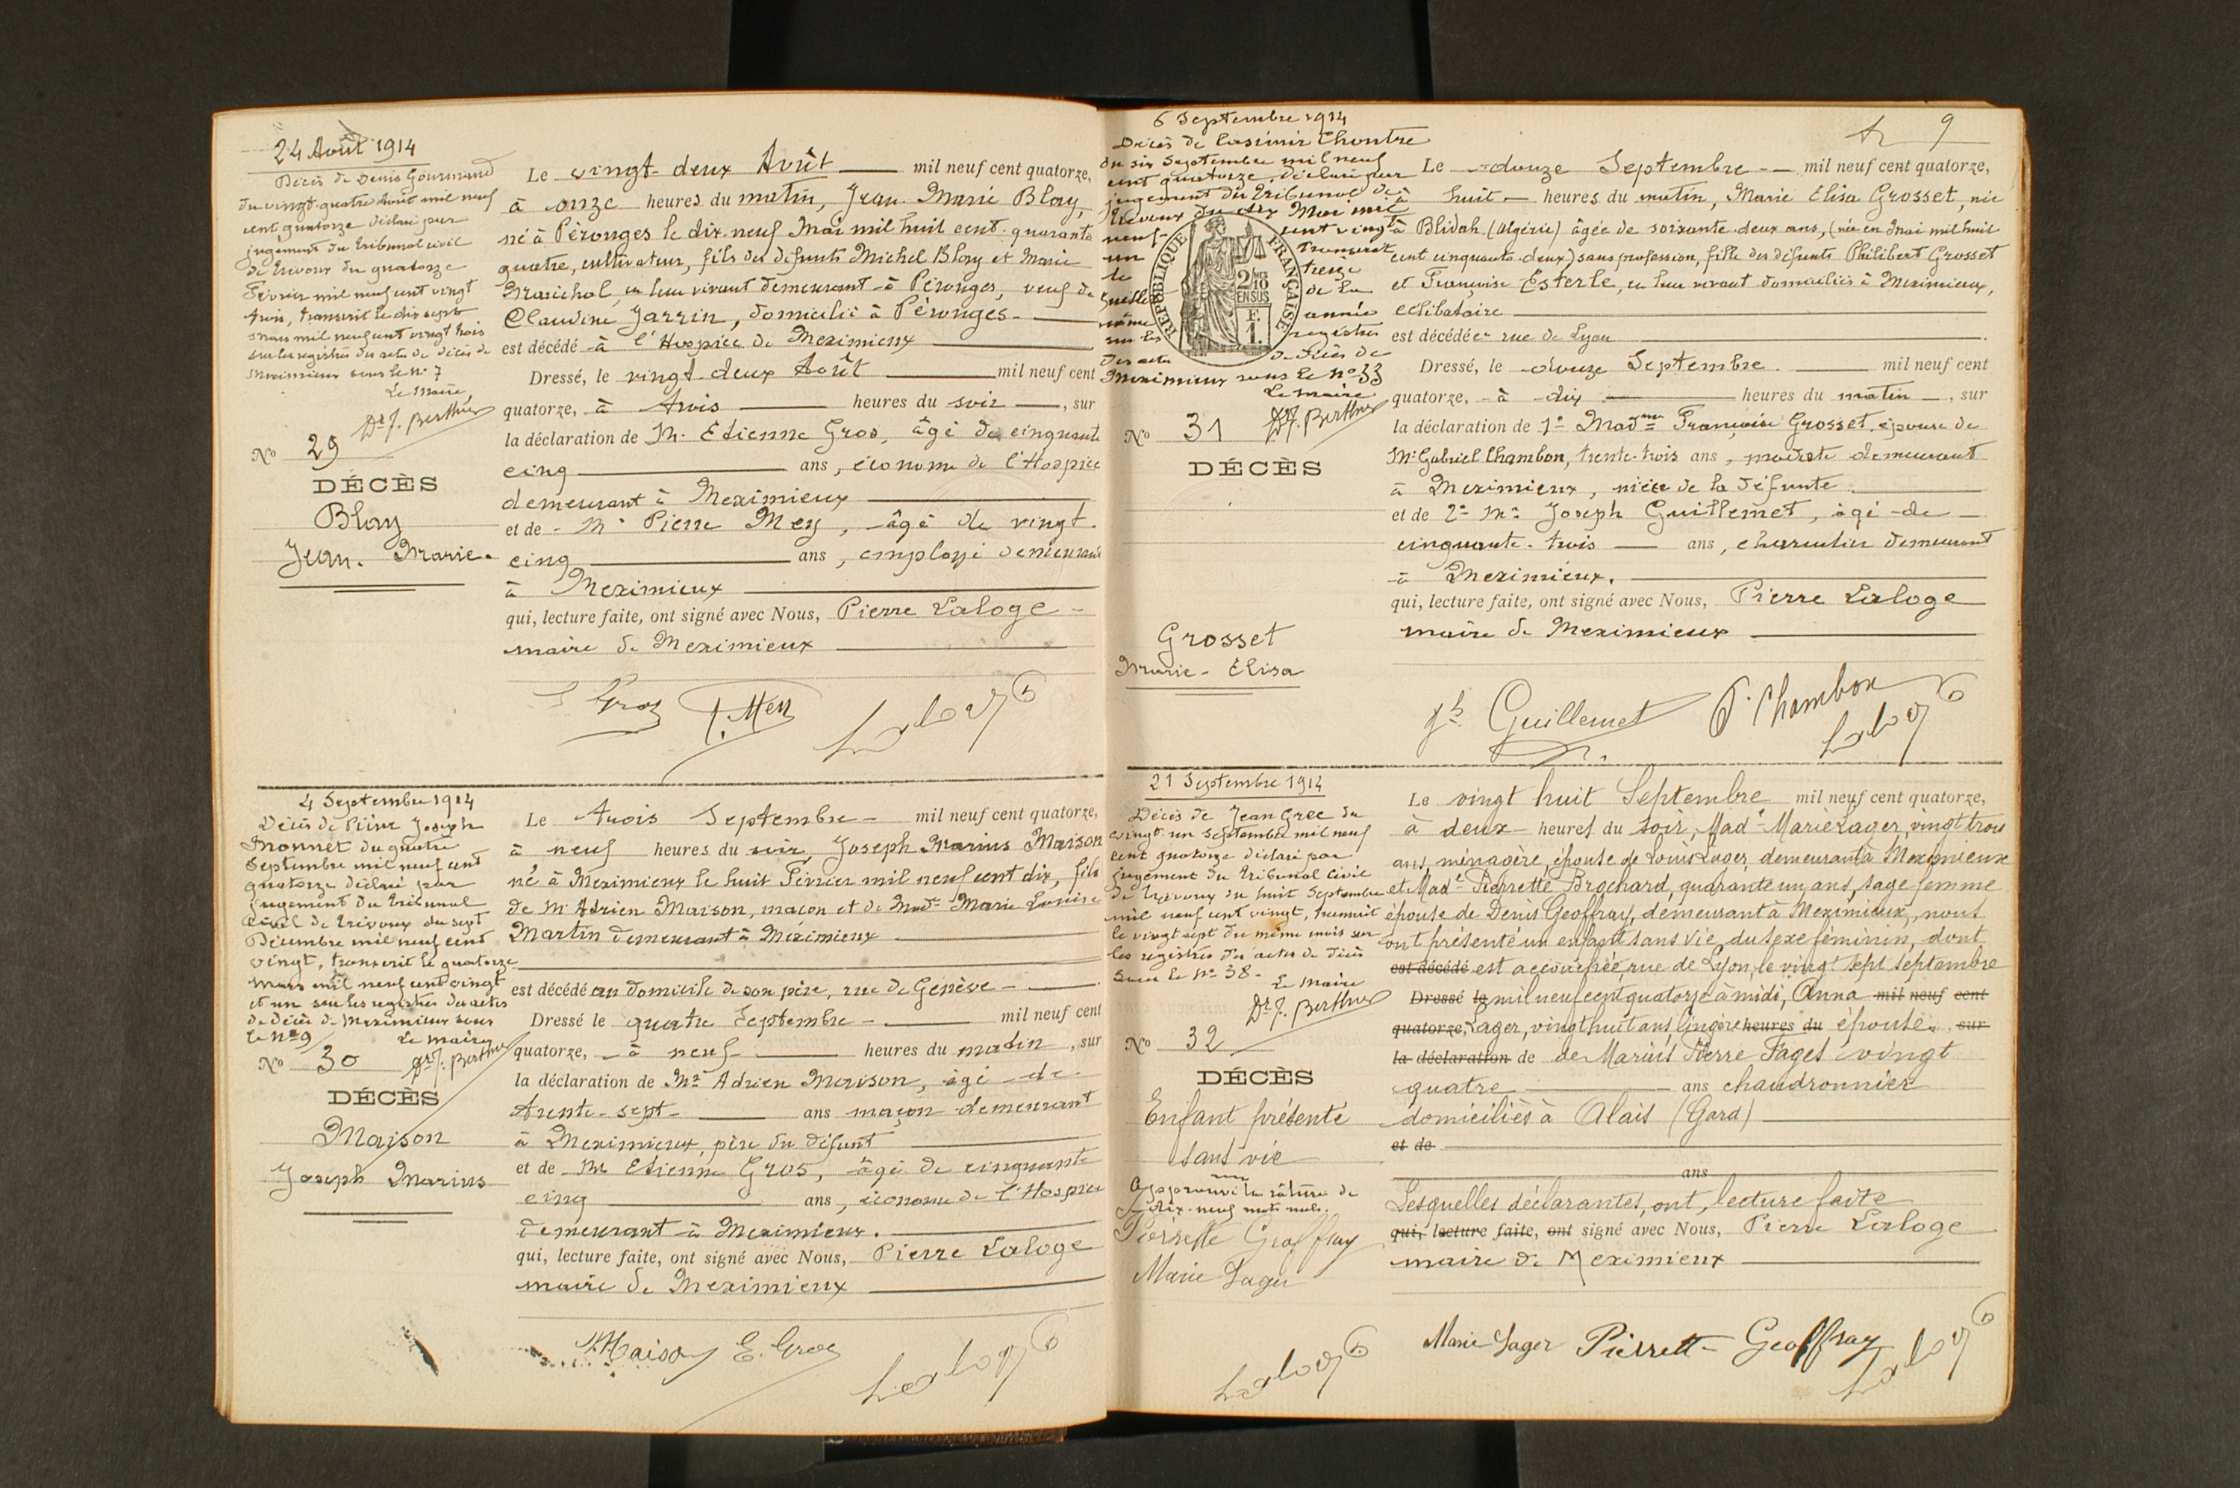 24 Août 1914
Décès de Denis Gourmand
du vingt quatre Août mil neuf
cent quatorze déclaré par
jugement du tribunal civil
de Trévoux du quatorze
Février mil neuf cent vingt
trois, transcrit le dix sept
Mars mil neuf cent vingt trois
sur les registres des actes de décès de
Meximieux sous le N° 7
Le Maire,
Dr J. Berthier
No 29
DÉCÈS
Blay
Jean-Marie
Le vingt-deux Août mil neuf cent quatorze,
à onze heures du matin, Jean Marie Blay,
né à Pérouges le dix neuf Mai mil huit cent quarante
quatre, cultivateur, fils des défunts Michel Blay et Marie
Maréchal, en leur vivant demeurant à Pérouges, veuf de
Claudine Jarrin, domicilié à Pérouges
est décédé à l'Hospice de Meximieux
Dressé, le vingt-deux Août mil neuf cent
quatorze, à trois heures du soir, sur
la déclaration de M. Etienne Gros, âgé de cinquante
cinq ans, économe de l'Hospice
demeurant à Meximieux
et de M. Pierre Mey, âgé de vingt
cinq ans, employé demeurant
à Meximieux
qui, lecture faite, ont signé avec Nous, Pierre Laloge
maire de Meximieux
E Gros P. Mey Laloge
4 Septembre 1914
Décès de Pierre Joseph
Monnet du quatre
Septembre mil neuf cent
quatorze déclaré par
jugement du tribunal
civil de Trévoux du sept
Décembre mil neuf cent
vingt, transcrit le quatorze
Mars mil neuf cent vingt
et un sur les registres des actes
de décès de Meximieux sous
le N° 9
Le Maire
Dr J. Berthier
No 30
DÉCÈS
Maison
Joseph Marius
Le trois Septembre mil neuf cent quatorze,
à neuf heures du soir, Joseph Marius Maison
né à Meximieux le huit Février mil neuf cent dix, fils
de Mr Adrien Maison, maçon et de Madme Marie Louise
Martin demeurant à Meximieux
est décédé au domicile de son père, rue de Genève
Dressé le quatre Septembre mil neuf cent
quatorze, à neuf heures du matin, sur
la déclaration de Mr Adrien Maison, âgé de
trente-sept ans maçon demeurant
à Meximieux, père du défunt
et de Mr Etienne Gros, âgé de cinquante
cinq ans, économe de l'Hospice
demeurant à Meximieux.
qui, lecture faite, ont signé avec Nous, Pierre Laloge
maire de Meximieux
A Maison E. Gros Laloge
9
6 Septembre 1914
Décès de Casimir Chontre
du six Septembre mil neuf
cent quatorze, déclaré par
jugement du tribunal de
Trévoux du dix Mai mil
neuf cent vingt
un transcrit
le treize
Juillet de la
même année
sur les registres
des actes de décès de
Meximieux sous le N° 33
Le Maire
Dr J. Berthier
RÉPUBLIQUE FRANÇAISE
2/10
EN SUS
F.
1.
No 31
DÉCÈS
Grosset
Marie-Elisa
Le douze Septembre mil neuf cent quatorze,
à huit heures du matin, Marie Elisa Grosset, née
à Blidah (Algérie) âgée de soixante-deux ans, (née en Mai mil huit
cent cinquante-deux) sans profession, fille des défunts Philibert Grosset
et Françoise Esterle, en leur vivant domiciliés à Meximieux,
célibataire
est décédée rue de Lyon
Dressé, le douze Septembre mil neuf cent
quatorze, à dix heures du matin, sur
la déclaration de 1° Madme Françoise Grosset, épouse de
Mr Gabriel Chambon, trente-trois ans, modiste demeurant
à Meximieux, nièce de la défunte
et de 2° Mr Joseph Guillemet, âgé de
cinquante-trois ans, charcutier demeurant
à Meximieux.
qui, lecture faite, ont signé avec Nous, Pierre Laloge
maire de Meximieux
Jh Guillemet F. Chambon Laloge
21 Septembre 1914
Décès de Jean Grec du
vingt-un Septembre mil neuf
cent quatorze déclaré par
jugement du tribunal civil
de Trévoux du huit Septembre
mil neuf cent vingt, transcrit
le vingt sept du même mois sur
les registres des actes de décès
sous le N° 38.
Le Maire
Dr J. Berthier
No 32
DÉCÈS
Enfant présenté
sans vie
Approuvé la râture de
dix-neuf mots nuls.
Pierrette Geoffray
Marie Lager
Laloge
Le vingt huit Septembre mil neuf cent quatorze,
à deux heures du soir, Made Marie Lager, vingt trois
ans, ménagère, épouse de Louis Lager, demeurant à Meximieux
et Made Pierrette Brochard, quarante un ans, sage femme
épouse de Denis Geoffray, demeurant à Meximieux, nous
ont présenté un enfant sans vie, du sexe féminin, dont
est décédé est accouchée, rue de Lyon, le vingt sept septembre
Dressé le mil neuf cent quatorze à midi, Anna mil neuf cent
quatorze, Lager, vingt huit ans, lingère heures du épouse, sur
la déclaration de de Marius Pierre Faget vingt
quatre ans chaudronnier
domiciliés à Alais (Gard)
et de
ans
Lesquelles déclarantes, ont, lecture faite
qui, lecture faite, ont signé avec Nous, Pierre Laloge
maire de Meximieux
Marie Lager Pierrette Geoffray Laloge